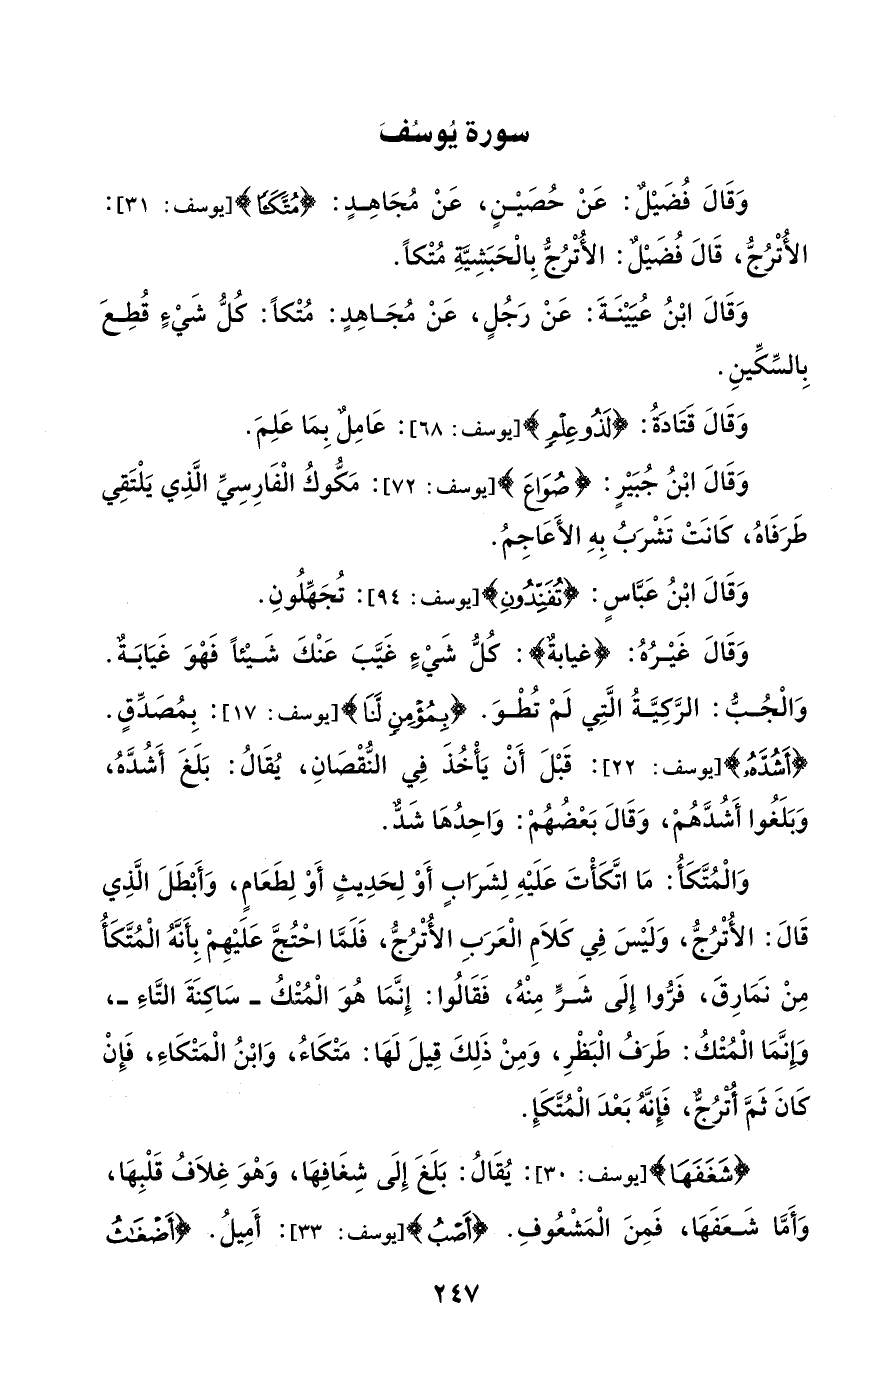 سورة يُوسُفَ
وَقَالَ فُضَيْلٌ: عَنْ حُصَيْنٍ، عَنْ مُجَاهِدٍ: ﴿مُتَّكَـًٔا﴾[يوسف: ٣١]:
الأُتْرُجُّ، قَالَ فُضَيْلٌ: الأُتْرُجُّ بِالْحَبَشِيَّةِ مُتْكاً.
وَقَالَ ابْنُ عُيَيْنَةَ: عَنْ رَجُلٍ، عَنْ مُجَاهِدٍ: مُتْكاً: كُلُّ شَيْءٍ قُطِعَ
بِالسِّكِّينِ.
وَقَالَ قَتَادَةُ: ﴿لَذُو عِلْمٍ﴾[يوسف: ٦٨]: عَامِلٌ بِمَا عَلِمَ.
وَقَالَ ابْنُ جُبَيْرٍ: ﴿صُوَاعَ﴾[يوسف: ٧٢]: مَكُّوكُ الْفَارِسِيِّ الَّذِي يَلْتَقِي
طَرَفَاهُ، كَانَتْ تَشْرَبُ بِهِ الأَعَاجِمُ.
وَقَالَ ابْنُ عَبَّاسٍ: ﴿تُفَنِّدُونِ﴾[يوسف: ٩٤]: تُجَهِّلُونِ.
وَقَالَ غَيْرُهُ: ﴿غيابةٌ﴾: كُلُّ شَيْءٍ غَيَّبَ عَنْكَ شَيْئاً فَهْوَ غَيَابَةٌ.
وَالْجُبُّ: الرَّكِيَّةُ الَّتِي لَمْ تُطْوَ. ﴿بِمُؤْمِنٍ لَّنَا﴾[يوسف: ١٧]: بِمُصَدِّقٍ.
﴿أَشُدَّهُۥ﴾[يوسف: ٢٢]: قَبْلَ أَنْ يَأْخُذَ فِي النُّقْصَانِ، يُقَالُ: بَلَغَ أَشُدَّهُ،
وَبَلَغُوا أَشُدَّهُمْ، وَقَالَ بَعْضُهُمْ: وَاحِدُهَا شَدٌّ.
وَالْمُتَّكَأُ: مَا اتَّكَأْتَ عَلَيْهِ لِشَرَابٍ أَوْ لِحَدِيثٍ أَوْ لِطَعَامٍ، وَأَبْطَلَ الَّذِي
قَالَ: الأُتْرُجُّ، وَلَيْسَ فِي كَلاَمِ الْعَرَبِ الأُتْرُجُّ، فَلَمَّا احْتُجَّ عَلَيْهِمْ بِأَنَّهُ الْمُتَّكَأُ
مِنْ نَمَارِقَ، فَرُّوا إِلَى شَرٍّ مِنْهُ، فَقَالُوا: إِنَّمَا هُوَ الْمُتْكُ ـ سَاكِنَةَ التَّاءِ ـ،
وَإِنَّمَا الْمُتْكُ: طَرَفُ الْبَظْرِ، وَمِنْ ذَلِكَ قِيلَ لَهَا: مَتْكَاءُ، وَابْنُ الْمَتْكَاءِ، فَإِنْ
كَانَ ثَمَّ أُتْرُجٌّ، فَإِنَّهُ بَعْدَ الْمُتَّكَإِ.
﴿شَغَفَهَا﴾[يوسف: ٣٠]: يُقَالُ: بَلَغَ إِلَى شِغَافِهَا، وَهْوَ غِلاَفُ قَلْبِهَا،
وَأَمَّا شَعَفَهَا، فَمِنَ الْمَشْعُوفِ. ﴿أَصْبُ﴾[يوسف: ٣٣]: أَمِيلُ. ﴿أَضْغَٰثُ
٢٤٧